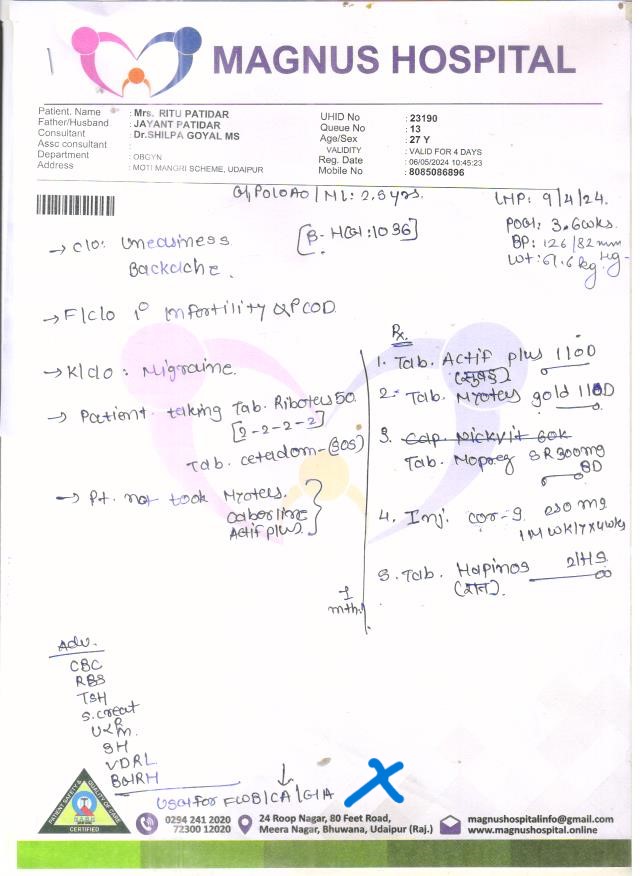 MAGNUS HOSPITAL
Patient. Name : Mrs. RITU PATIDAR
Father/Husband : JAYANT PATIDAR
Consultant : Dr.SHILPA GOYAL MS
Assc consultant :
Department : OBGYN
Address : MOTI MANGRI SCHEME, UDAIPUR
UHID No : 23190
Queue No : 13
Age/Sex : 27 Y
VALIDITY : VALID FOR 4 DAYS
Reg. Date : 06/05/2024 10:45:23
Mobile No : 8085086896
G1P0L0A0 / ML: 2.5 yrs.
LMP: 9/4/24.
POG: 3.6 wks.
BP: 126/82 mm Hg
Wt: 61.6 kg.
[β-HCG: 1036]
→ C/O: Uneasiness
Backache.
→ F/C/O 1° Infertility & PCOD
→ K/C/O: Migraine.
→ Patient taking Tab. Riboters 50
[2-2-2-2]
Tab. Cetadom - (SOS)
→ Pt. not took Myoters.
Caberline
Actif plus.
Rx.
1. Tab. Actif plus 1 OD
(सुबह)
2. Tab. Myoters gold 1 OD
3. Cap. Nickvit 60k
Tab. Mopreg SR 300mg
BD
4. Inj. Cor-9 250 mg
IM WKLY x 4 wks
5. Tab. Hapinos 2 HS
(रात).
1
mth.
Adv.
CBC
RBS
TSH
S.creat
U R/M.
SH
VDRL
BGRH
USG for FWB/CA/GA
PATIENT SAFETY & QUALITY OF CARE
N.A.B.H
CERTIFIED
0294 241 2020
72300 12020
24 Roop Nagar, 80 Feet Road,
Meera Nagar, Bhuwana, Udaipur (Raj.)
magnushospitalinfo@gmail.com
www.magnushospital.online